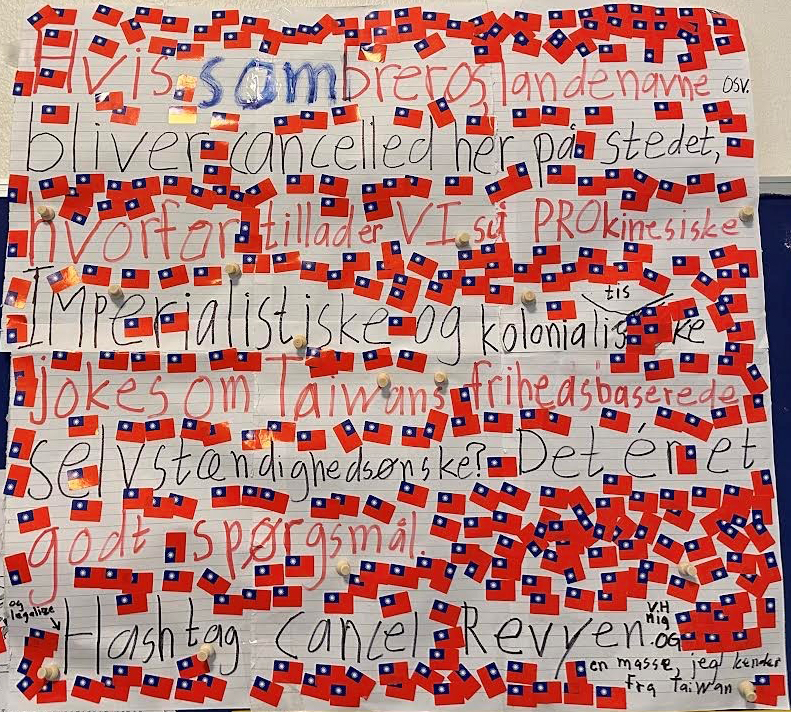 Hvis sombreros landenavne osv.
bliver cancelled her på stedet,
hvorfor tillader VI så PROkinesiske
IMPerialistiske og kolonialis tis ke
jokes om Taiwans frihedsbaserede
selvstændighedsønske? Det ér et
godt spørgsmål.
og legalize
Hashtag Cancel Revyen.
V.H
mig
.OG
en masse, jeg kender
Fra Taiwan